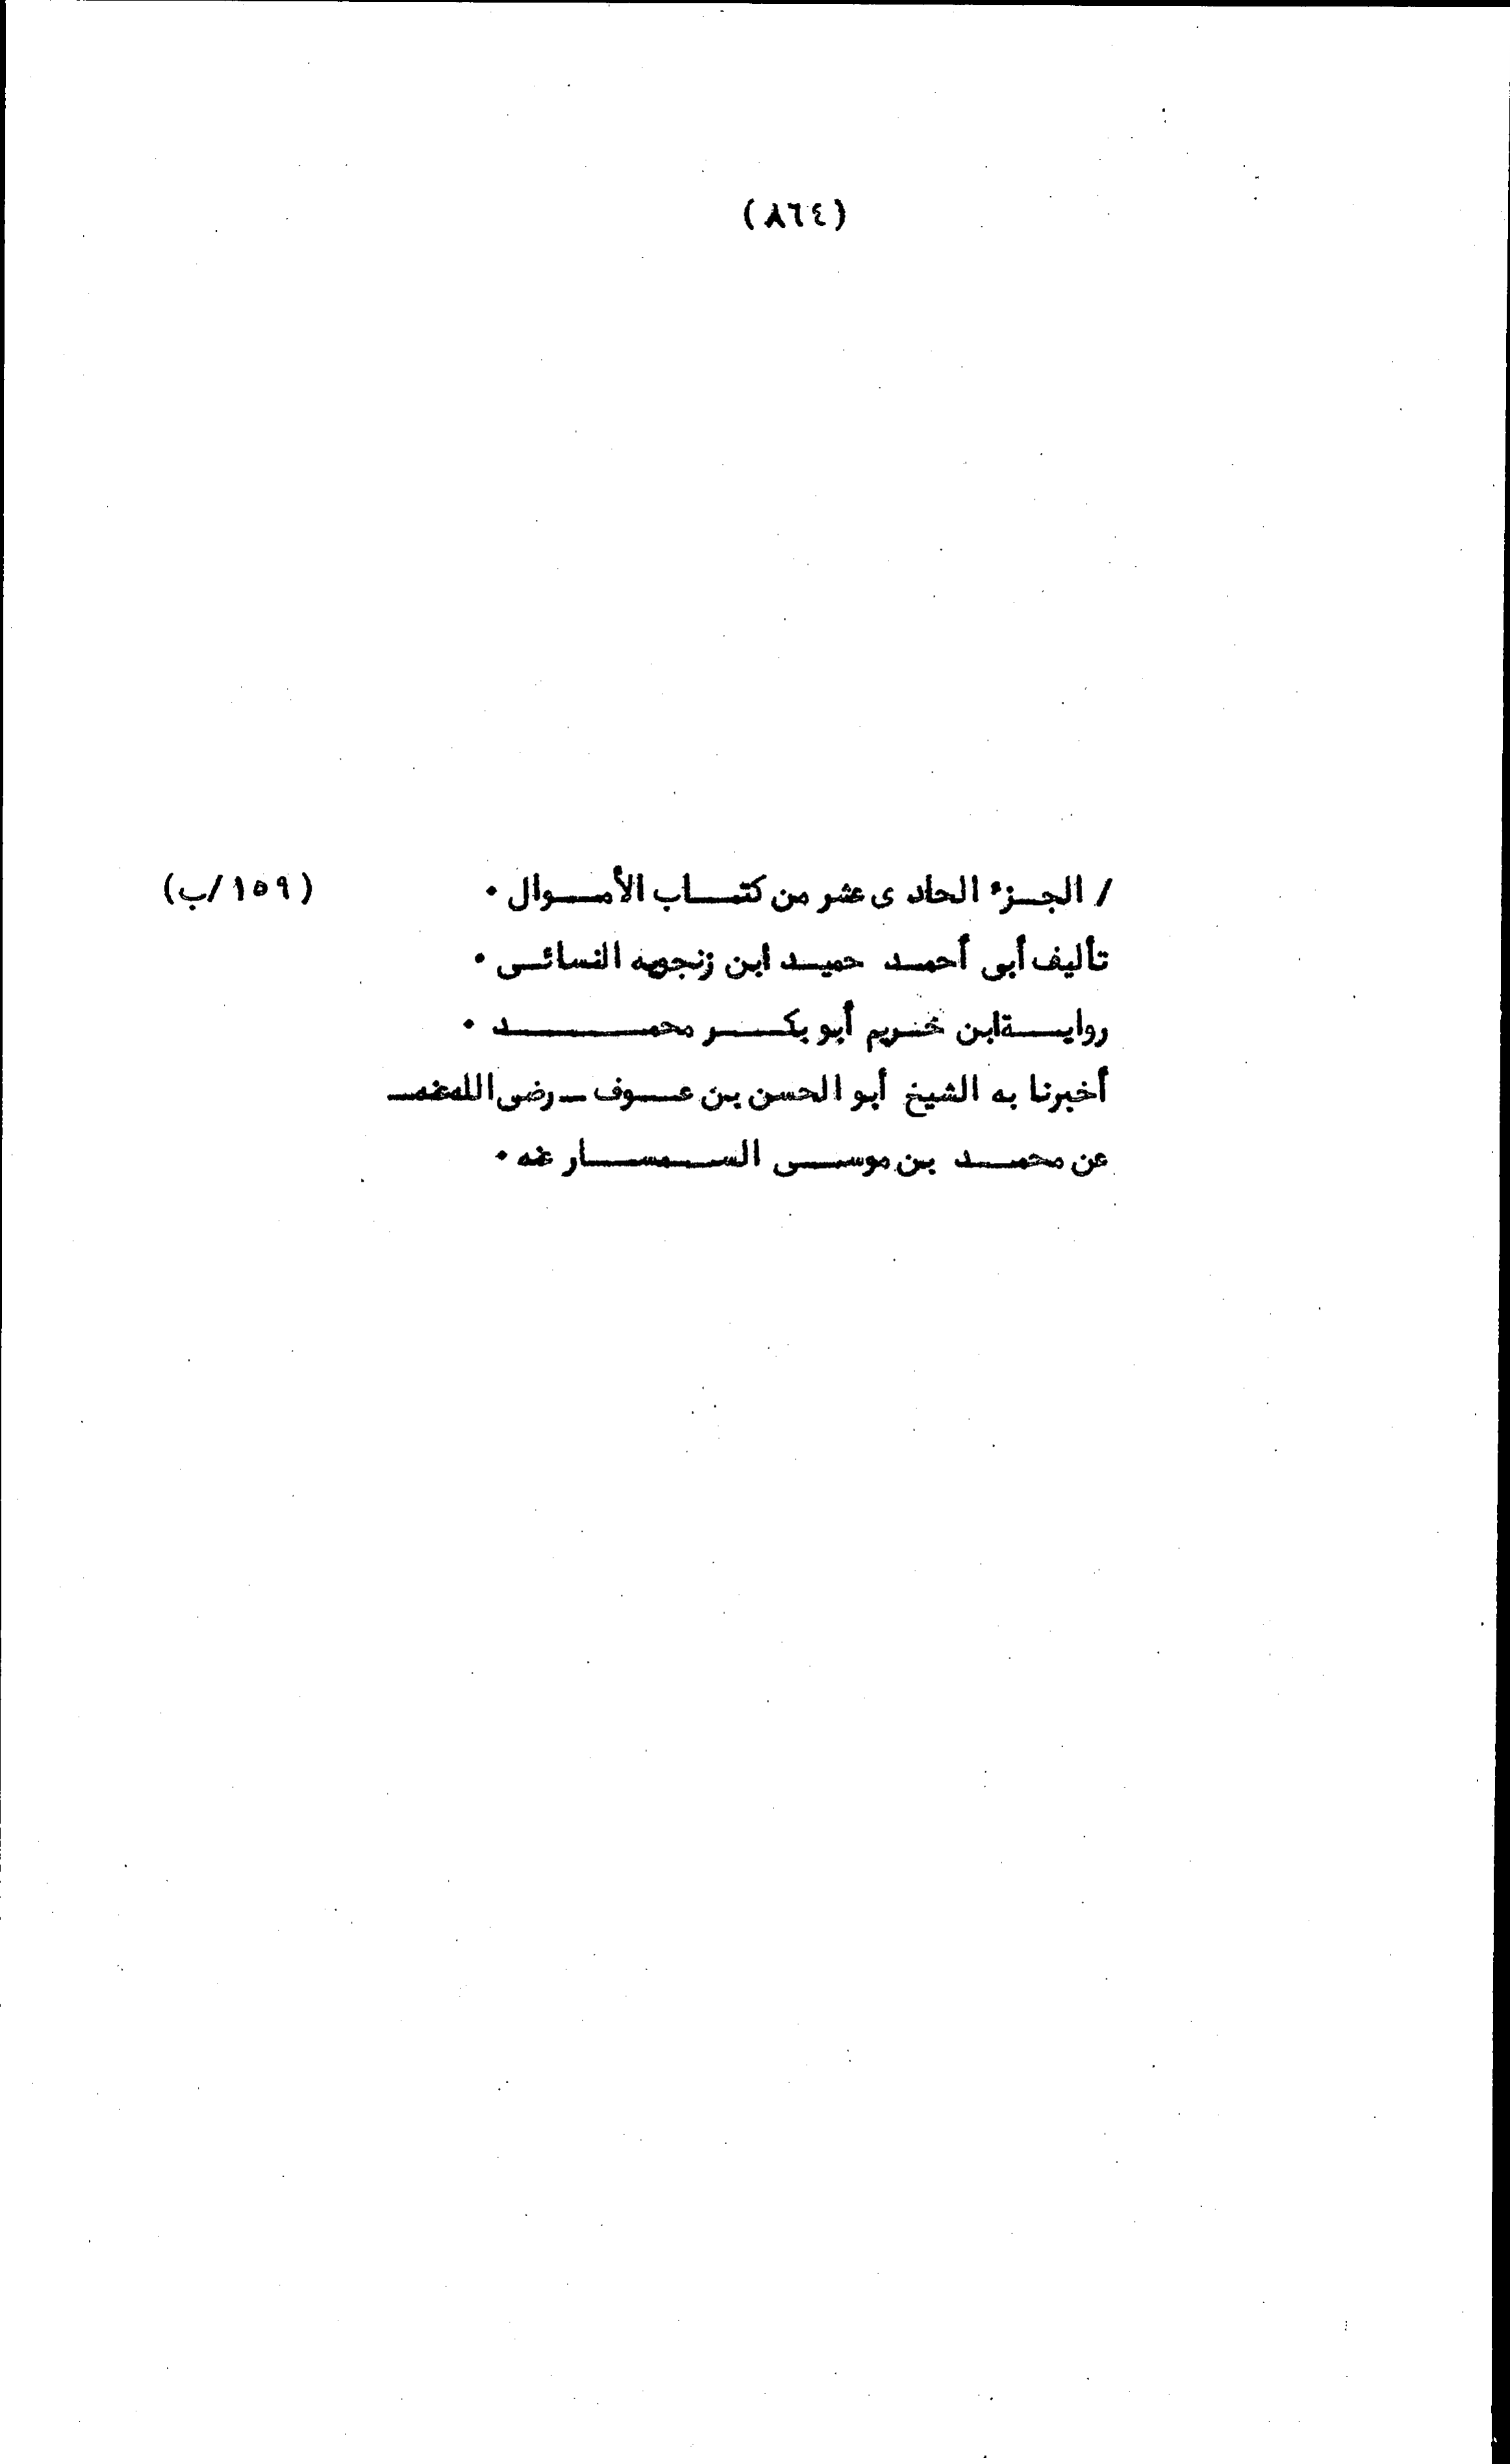 (٨٦٤)
/ الجزء الحادى عشر من كتاب الأموال . (١٥٩/ب)
تأليف أبى أحمد حميد ابن زنجويه النسائى .
رواية ابن خريم أبو بكر محمد .
أخبرنا به الشيخ أبو الحسن بن عوف - رضى الله عنه -
عن محمد بن موسى السمسار عنه .